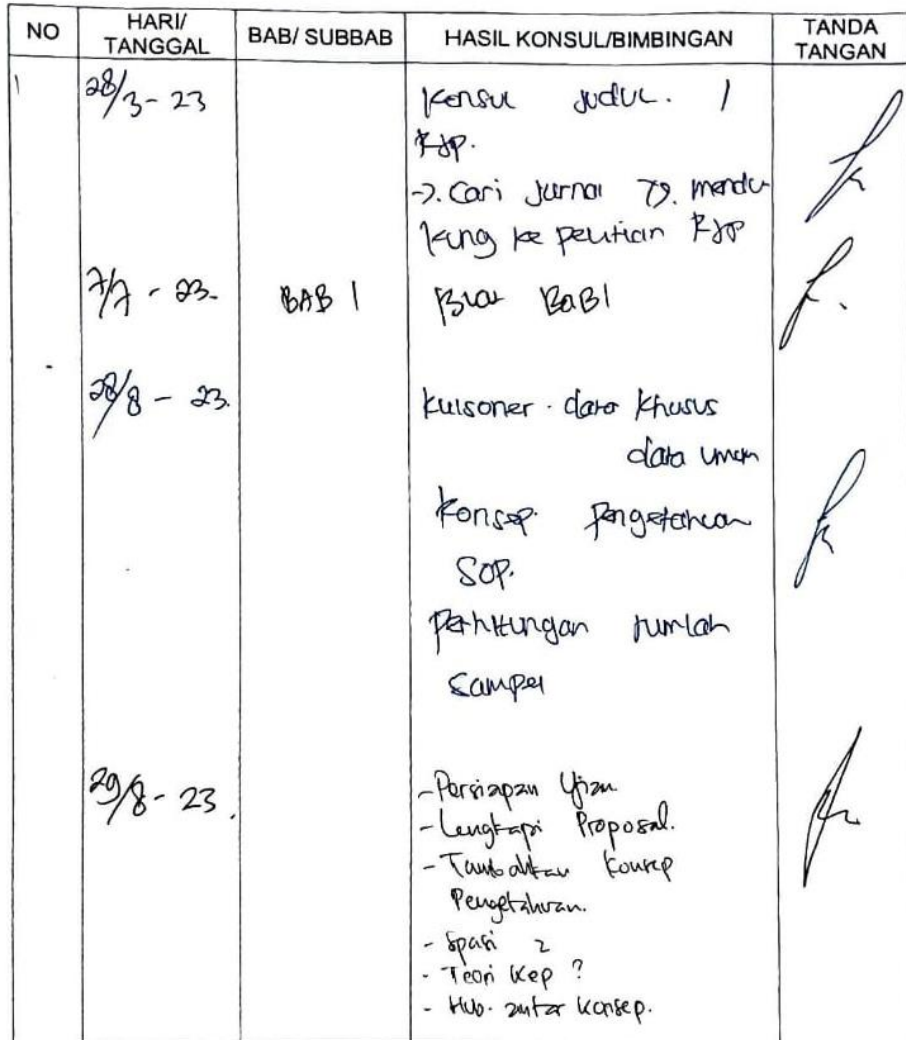 NO HARI/ TANGGAL BAB/ SUBBAB HASIL KONSUL/BIMBINGAN TANDA TANGAN
1 28/3 - 23 Konsul judul. 1
RJP.
->. Cari jurnal yg. mendu-
kung ke RJP
7/7 - 23. BAB 1 Buat BaB1
28/8 - 23. kuisoner. data khusus
data umum
Konsep. Pengetahuan
SOP.
Perhitungan jumlah
Sampel
29/8 - 23. - Persiapan Ujian
- Lengkapi Proposal.
- Tambahkan Konsep
Pengetahuan.
- Spasi 2
- Teori Kep ?
- Hub. antar Konsep.